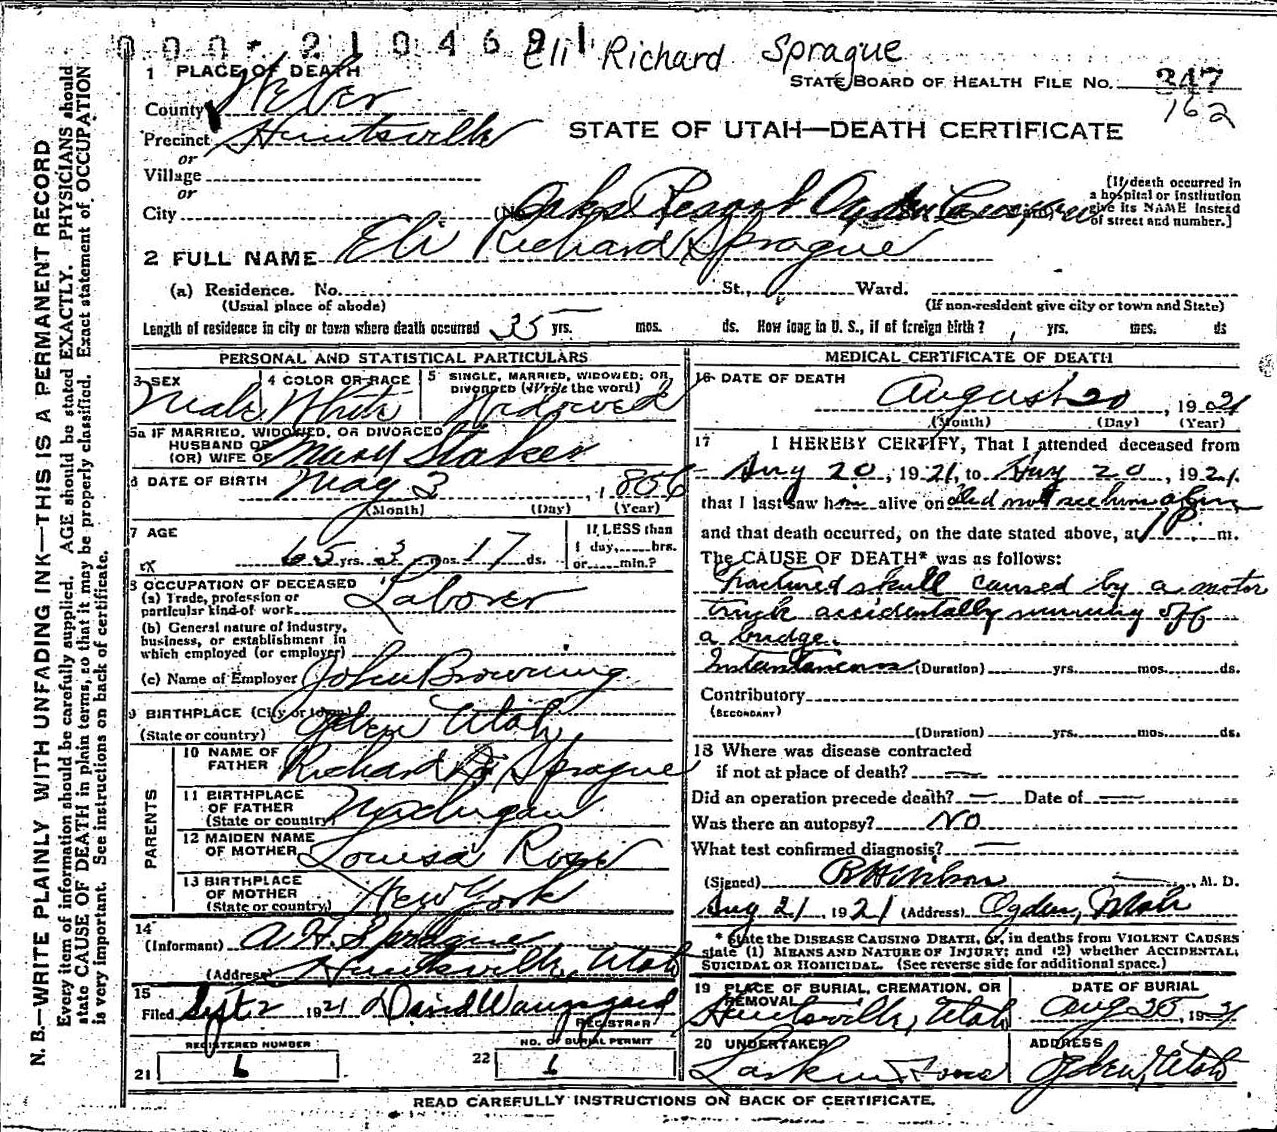 000* 2104691
Eli Richard Sprague
STATE BOARD OF HEALTH FILE NO. 347
162
1 PLACE OF DEATH
County Weber
Precinct Huntsville
STATE OF UTAH—DEATH CERTIFICATE
or
Village
or
City (No. Oaks Resort Ogden Canyon
[If death occurred in
a hospital or institution
give its NAME instead
of street and number.]
2 FULL NAME Eli Richard Sprague
(a) Residence. No. St., Ward.
(Usual place of abode) (If non-resident give city or town and State)
Length of residence in city or town where death occurred 35 yrs. mos. ds. How long in U. S., if of foreign birth? yrs. mos. ds
PERSONAL AND STATISTICAL PARTICULARS
3 SEX
Male
4 COLOR OR RACE
White
5 SINGLE, MARRIED, WIDOWED, OR
DIVORCED (Write the word)
Widowed
5a IF MARRIED, WIDOWED, OR DIVORCED
HUSBAND OF
(OR) WIFE OF Mary Staker
6 DATE OF BIRTH May 3, 1856
(Month) (Day) (Year)
7 AGE
65 yrs. 3 mos. 17 ds.
If LESS than
1 day, hrs.
or min.?
8 OCCUPATION OF DECEASED
(a) Trade, profession or
particular kind of work Laborer
(b) General nature of industry,
business, or establishment in
which employed (or employer)
(c) Name of Employer John Browning
9 BIRTHPLACE (City or town)
(State or country) Ogden Utah
PARENTS
10 NAME OF
FATHER Richard D. Sprague
11 BIRTHPLACE
OF FATHER
(State or country) Michigan
12 MAIDEN NAME
OF MOTHER Louisa Rose
13 BIRTHPLACE
OF MOTHER
(State or country) New York
14
(Informant) A. H. Sprague
(Address) Huntsville, Utah
15
Filed Sept 2 1921 David Wangsgard
REGISTRAR
REGISTERED NUMBER
21 6
NO. OF BURIAL PERMIT
22 6
MEDICAL CERTIFICATE OF DEATH
16 DATE OF DEATH
August 20, 1921
(Month) (Day) (Year)
17 I HEREBY CERTIFY, That I attended deceased from
Aug 20, 1921, to Aug 20, 1921
that I last saw him alive on did not see him alive
and that death occurred, on the date stated above, at 1 P. m.
The CAUSE OF DEATH* was as follows:
Fractured skull caused by a motor
truck accidentally running off
a bridge.
Instantaneous (Duration) yrs. mos. ds.
Contributory
(SECONDARY)
(Duration) yrs. mos. ds.
18 Where was disease contracted
if not at place of death? —
Did an operation precede death? — Date of —
Was there an autopsy? No
What test confirmed diagnosis? —
(Signed) , M. D.
Aug 21, 1921 (Address) Ogden, Utah
* State the DISEASE CAUSING DEATH, or, in deaths from VIOLENT CAUSES
state (1) MEANS AND NATURE OF INJURY; and (2) whether ACCIDENTAL,
SUICIDAL OR HOMICIDAL. (See reverse side for additional space.)
19 PLACE OF BURIAL, CREMATION, OR
REMOVAL
Huntsville, Utah
DATE OF BURIAL
Aug 25, 1921
20 UNDERTAKER
Larkin & Sons
ADDRESS
Ogden, Utah
READ CAREFULLY INSTRUCTIONS ON BACK OF CERTIFICATE.
N. B.—WRITE PLAINLY WITH UNFADING INK—THIS IS A PERMANENT RECORD
Every item of information should be carefully supplied. AGE should be stated EXACTLY. PHYSICIANS should
state CAUSE OF DEATH in plain terms, so that it may be properly classified. Exact statement of OCCUPATION
is very important. See instructions on back of certificate.